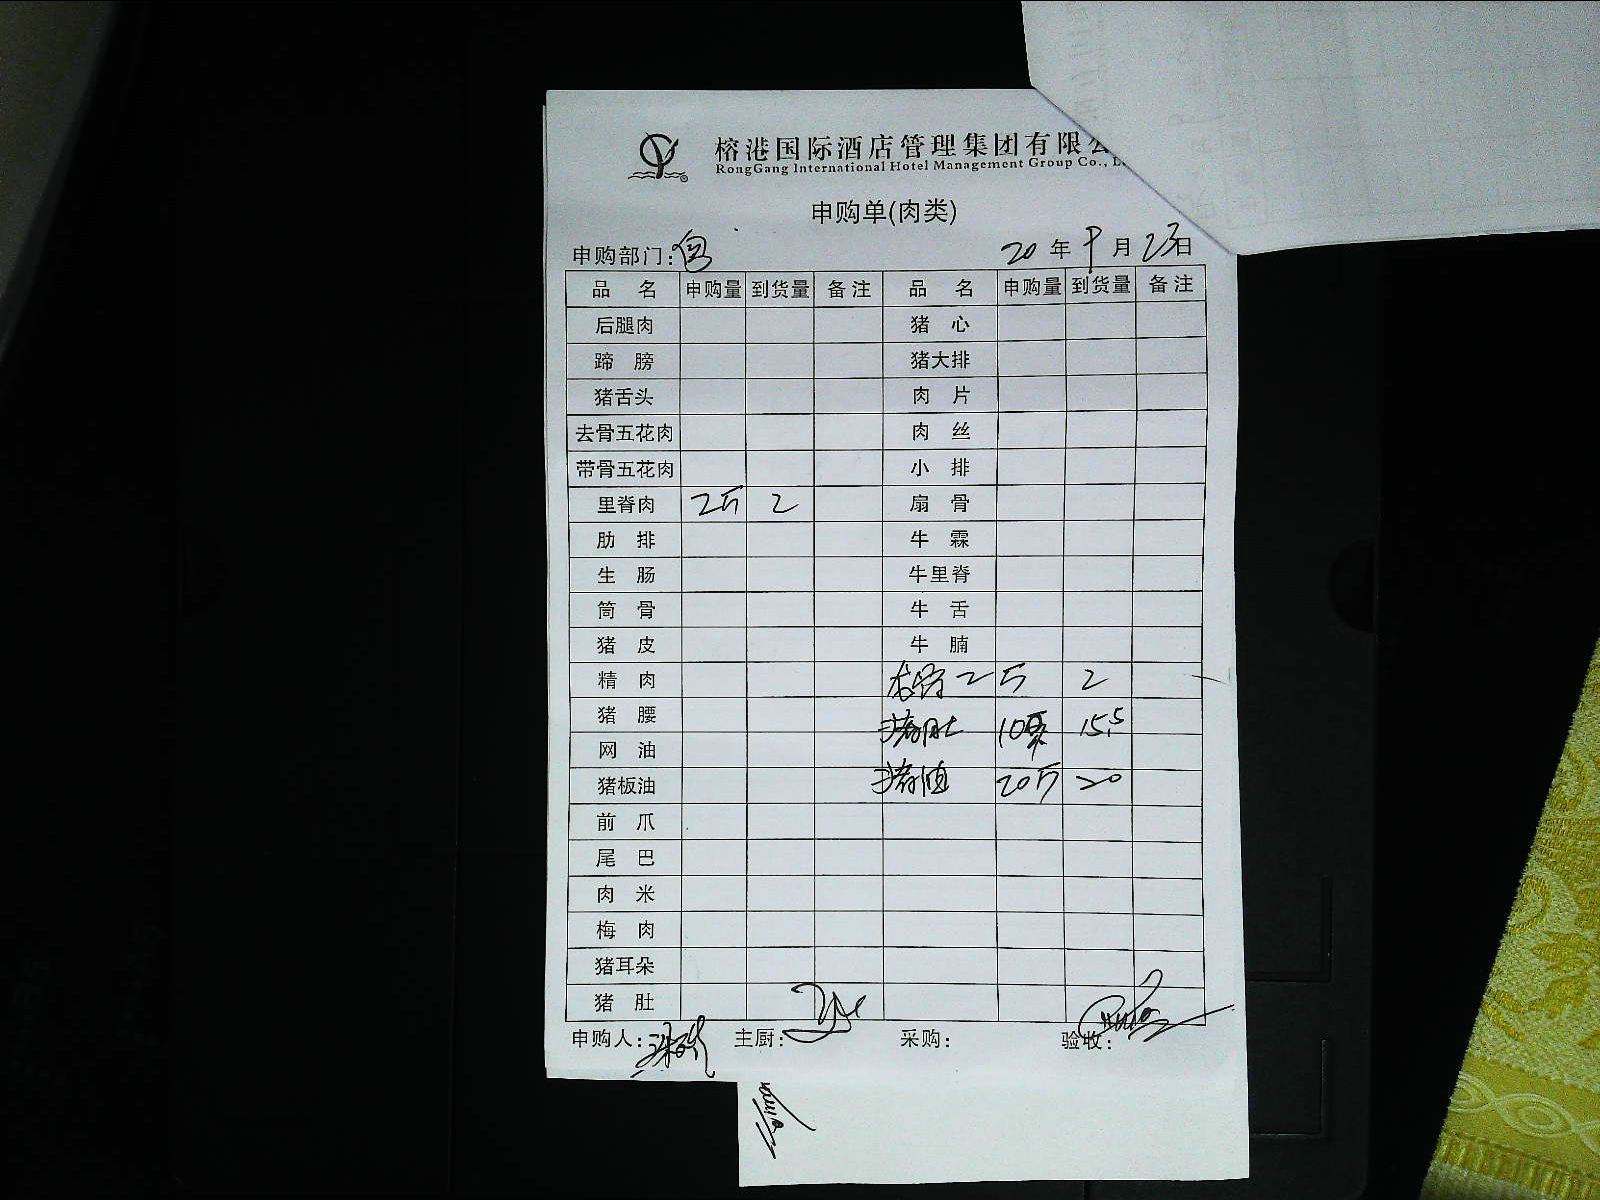 榕港国际酒店管理集团有限公
RongGang International Hotel Management Group Co., L
申购单(肉类)
申购部门: 20 年 9 月 23 日
品 名 申购量 到货量 备注 品 名 申购量 到货量 备注
后腿肉 猪 心
蹄 膀 猪大排
猪舌头 肉 片
去骨五花肉 肉 丝
带骨五花肉 小 排
里脊肉 2斤 2 扇 骨
肋 排 牛 霖
生 肠 牛里脊
筒 骨 牛 舌
猪 皮 牛 腩
精 肉 2斤 2
猪 腰 猪肚 10 15.5
网 油
猪板油 猪 20斤 20
前 爪
尾 巴
肉 米
梅 肉
猪耳朵
猪 肚
申购人: 主厨: 采购: 验收: